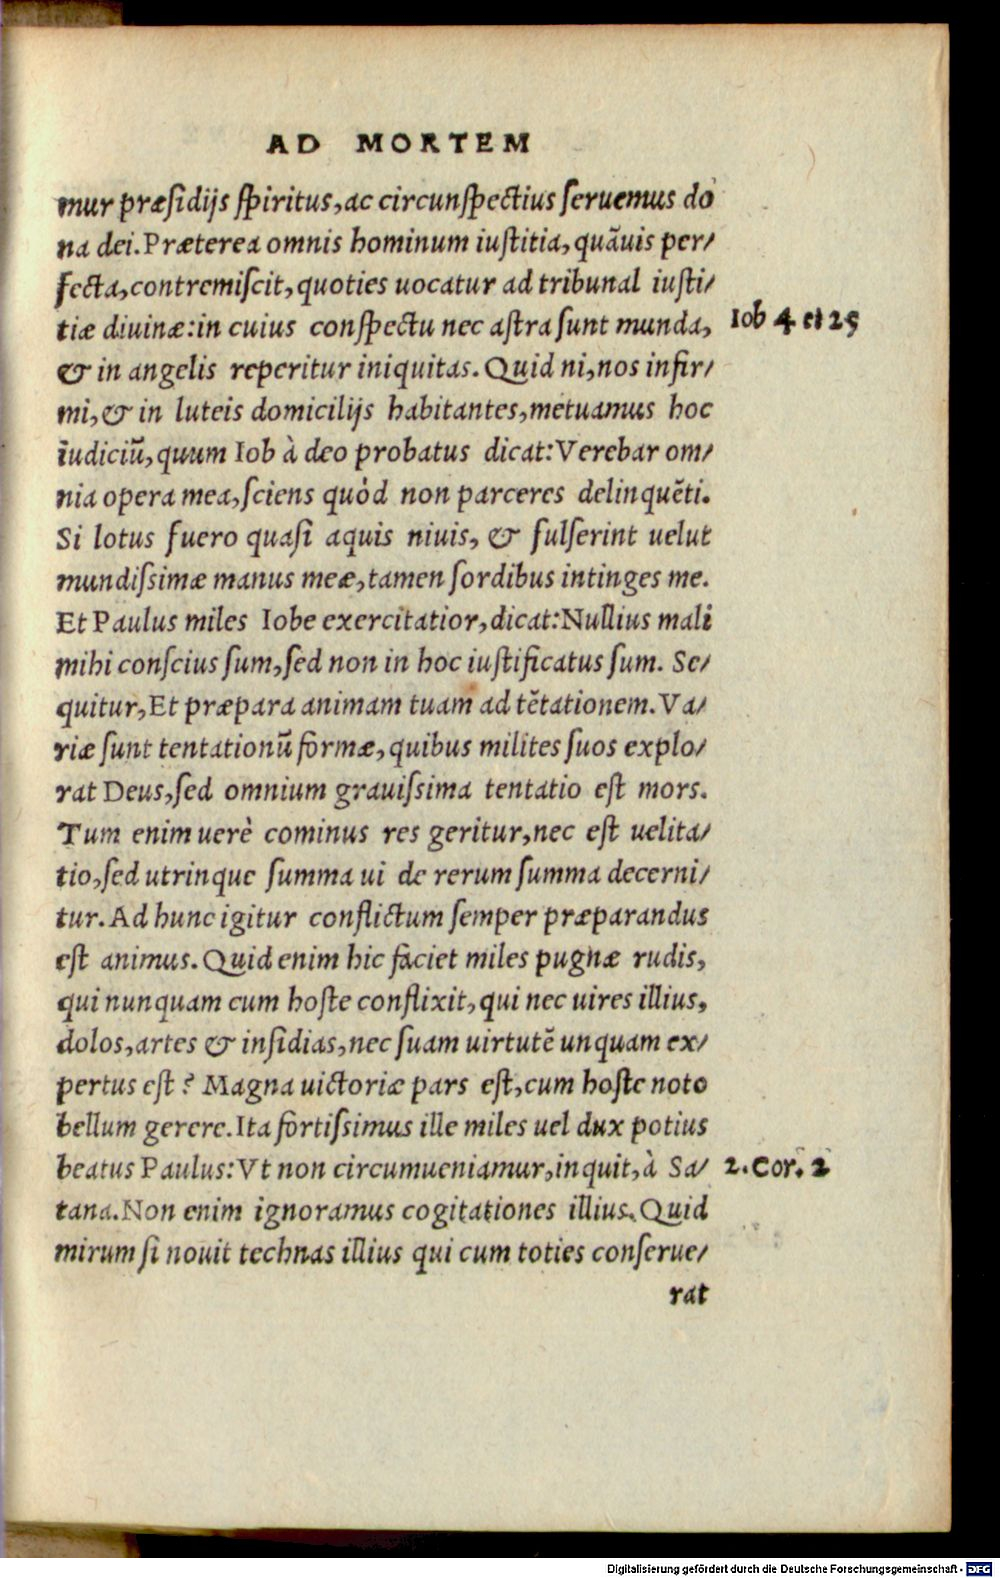 AD MORTEM
mur præsidijs spiritus, ac circunspectius seruemus do
na dei. Præterea omnis hominum iustitia, quãuis per/
fecta, contremiscit, quoties uocatur ad tribunal iusti/
tiæ diuinæ: in cuius conspectu nec astra sunt munda,
Iob 4 et 25
& in angelis reperitur iniquitas. Quid ni, nos infir/
mi, & in luteis domicilijs habitantes, metuamus hoc
iudiciũ, quum Iob à deo probatus dicat: Verebar om/
nia opera mea, sciens quòd non parceres delinquẽti.
Si lotus fuero quasi aquis niuis, & fulserint uelut
mundissimæ manus meæ, tamen sordibus intinges me.
Et Paulus miles Iobe exercitatior, dicat: Nullius mali
mihi conscius sum, sed non in hoc iustificatus sum. Se/
quitur, Et præpara animam tuam ad tẽtationem. Va/
riæ sunt tentationũ formæ, quibus milites suos explo/
rat Deus, sed omnium grauissima tentatio est mors.
Tum enim uerè cominus res geritur, nec est uelita/
tio, sed utrinque summa ui de rerum summa decerni/
tur. Ad hunc igitur conflictum semper præparandus
est animus. Quid enim hic faciet miles pugnæ rudis,
qui nunquam cum hoste conflixit, qui nec uires illius,
dolos, artes & insidias, nec suam uirtutẽ unquam ex/
pertus est? Magna uictoriæ pars est, cum hoste noto
bellum gerere. Ita fortissimus ille miles uel dux potius
beatus Paulus: Vt non circumueniamur, inquit, à Sa/
2. Cor. 2
tana. Non enim ignoramus cogitationes illius. Quid
mirum si nouit technas illius qui cum toties conserue/
rat
Digitalisierung gefördert durch die Deutsche Forschungsgemeinschaft - DFG